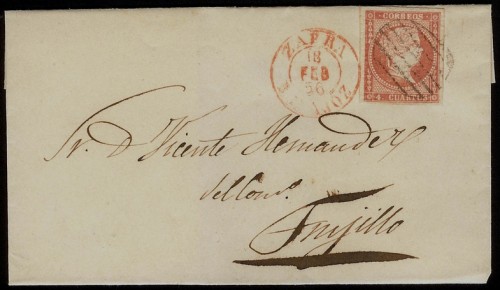 ZAFRA
18
FEB
56
CORREOS
4 CUARTOS
Sr. D Vicente Hernandez
del Com.º
Trujillo